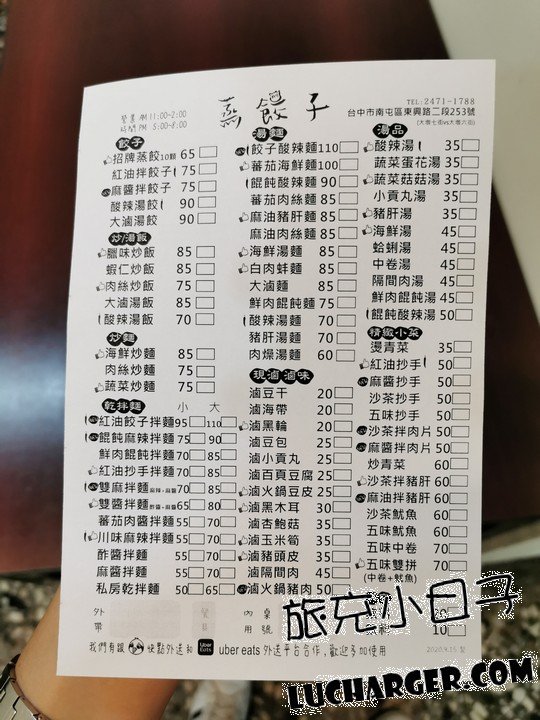 蒸餃子
營業 AM 11:00-2:00
時間 PM 5:00-8:00
TEL:2471-1788
台中市南屯區東興路二段253號
(大墩七街vs大墩六街)
餃子
招牌蒸餃10顆 65
紅油拌餃子 75
麻醬拌餃子 75
酸辣湯餃 90
大滷湯餃 90
炒/湯飯
臘味炒飯 85
蝦仁炒飯 85
肉絲炒飯 75
大滷湯飯 85
酸辣湯飯 70
炒麵
海鮮炒麵 85
肉絲炒麵 75
蔬菜炒麵 75
乾拌麵 小 大
紅油餃子拌麵 95 110
餛飩麻辣拌麵 75 90
鮮肉餛飩拌麵 70 85
紅油抄手拌麵 70 85
雙麻拌麵 麻辣+麻醬 70 85
雙醬拌麵 酢醬+麻醬 65 80
蕃茄肉醬拌麵 55 70
川味麻辣拌麵 55 70
酢醬拌麵 55 70
麻醬拌麵 55 70
私房乾拌麵 50 65
湯麵
餃子酸辣麵 110
蕃茄海鮮麵 100
餛飩酸辣麵 90
蕃茄肉絲麵 85
麻油豬肝麵 85
麻油肉絲麵 85
海鮮湯麵 85
白肉蚌麵 85
大滷麵 85
鮮肉餛飩麵 75
酸辣湯麵 70
豬肝湯麵 70
肉燥湯麵 60
現滷滷味
滷豆干 20
滷海帶 20
滷黑輪 20
滷豆包 25
滷小貢丸 25
滷百頁豆腐 25
滷火鍋豆皮 25
滷黑木耳 30
滷杏鮑菇 35
滷玉米筍 35
滷豬頭皮 35
滷隔間肉 45
滷火鍋豬肉 50
湯品
酸辣湯 35
蔬菜蛋花湯 35
蔬菜菇菇湯 35
小貢丸湯 35
豬肝湯 35
海鮮湯 45
蛤蜊湯 45
中卷湯 45
隔間肉湯 45
鮮肉餛飩湯 45
餛飩酸辣湯 50
精緻小菜
燙青菜 35
紅油抄手 50
麻醬抄手 50
沙茶抄手 50
五味抄手 50
沙茶拌肉片 50
麻醬拌肉片 50
炒青菜 60
沙茶拌豬肝 60
麻油拌豬肝 60
沙茶魷魚 60
五味魷魚 60
五味中卷 70
五味雙拼 70
(中卷+魷魚)
20
10
外帶
內用
桌號
我們有跟 快點外送和 Uber Eats uber eats外送平台合作,歡迎多加使用
2020.9.15 製
旅充小日子
LUCHARGER.COM